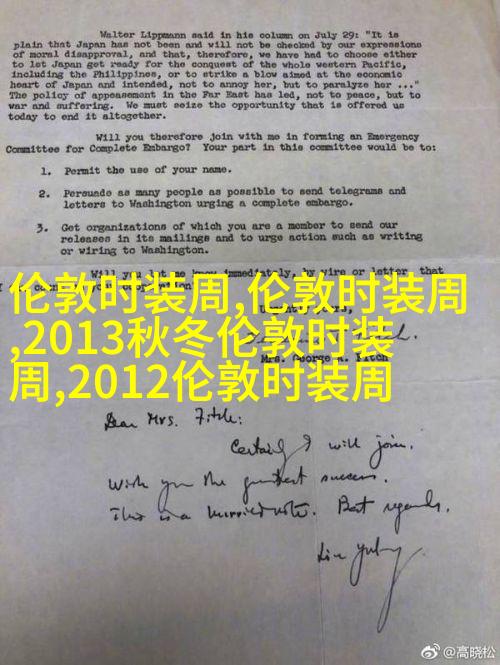 Walter Lippmann said in his column on July 29: "It is
plain that Japan has not been and will not be checked by our expressions
of moral disapproval, and that, therefore, we have had to choose either
to let Japan get ready for the conquest of the whole western Pacific,
including the Philippines, or to strike a blow aimed at the economic
heart of Japan and intended, not to annoy her, but to paralyze her ..."
The policy of appeasement in the Far East has led, not to peace, but to
war and suffering. We must seize the opportunity that is offered us
today to end it altogether.
Will you therefore join with me in forming an Emergency
Committee for Complete Embargo? Your part in this committee would be to:
1. Permit the use of your name.
2. Persuade as many people as possible to send telegrams and
letters to Washington urging a complete embargo.
3. Get organizations of which you are a member to send our
releases in its mailings and to urge action such as writing
or wiring to Washington.
Will you let me know immediately, by wire or letter that
伦敦时装周,伦敦时装周
,2013秋冬伦敦时装
周,2012伦敦时装周
Mrs. George A. Fitch
Dear Mrs. Fitch:
Certainly I will join.
Wish you the greatest success.
This is a hurried note. Best regards.
Lin Yutang
@高晓松